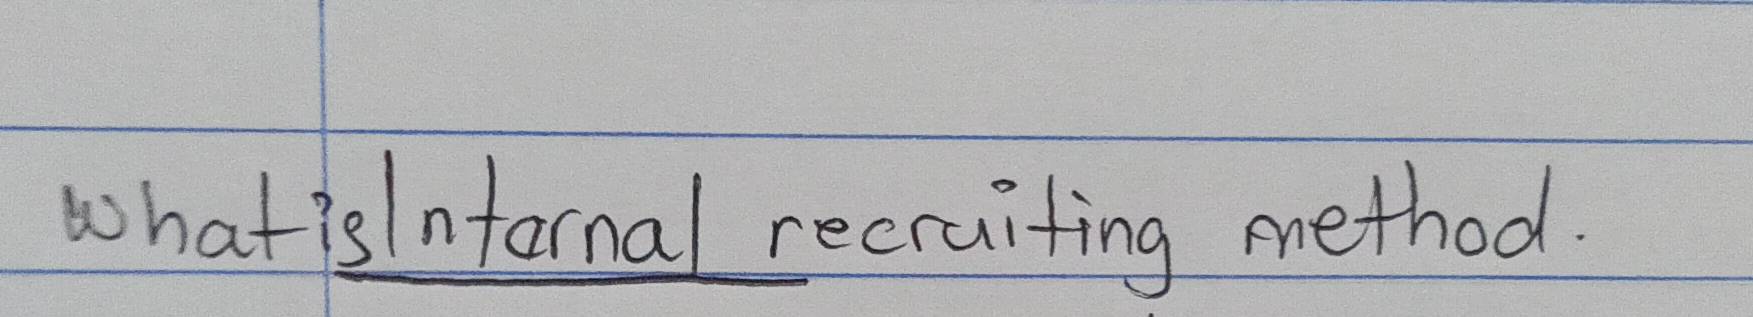 what is Intarnal recruiting method.